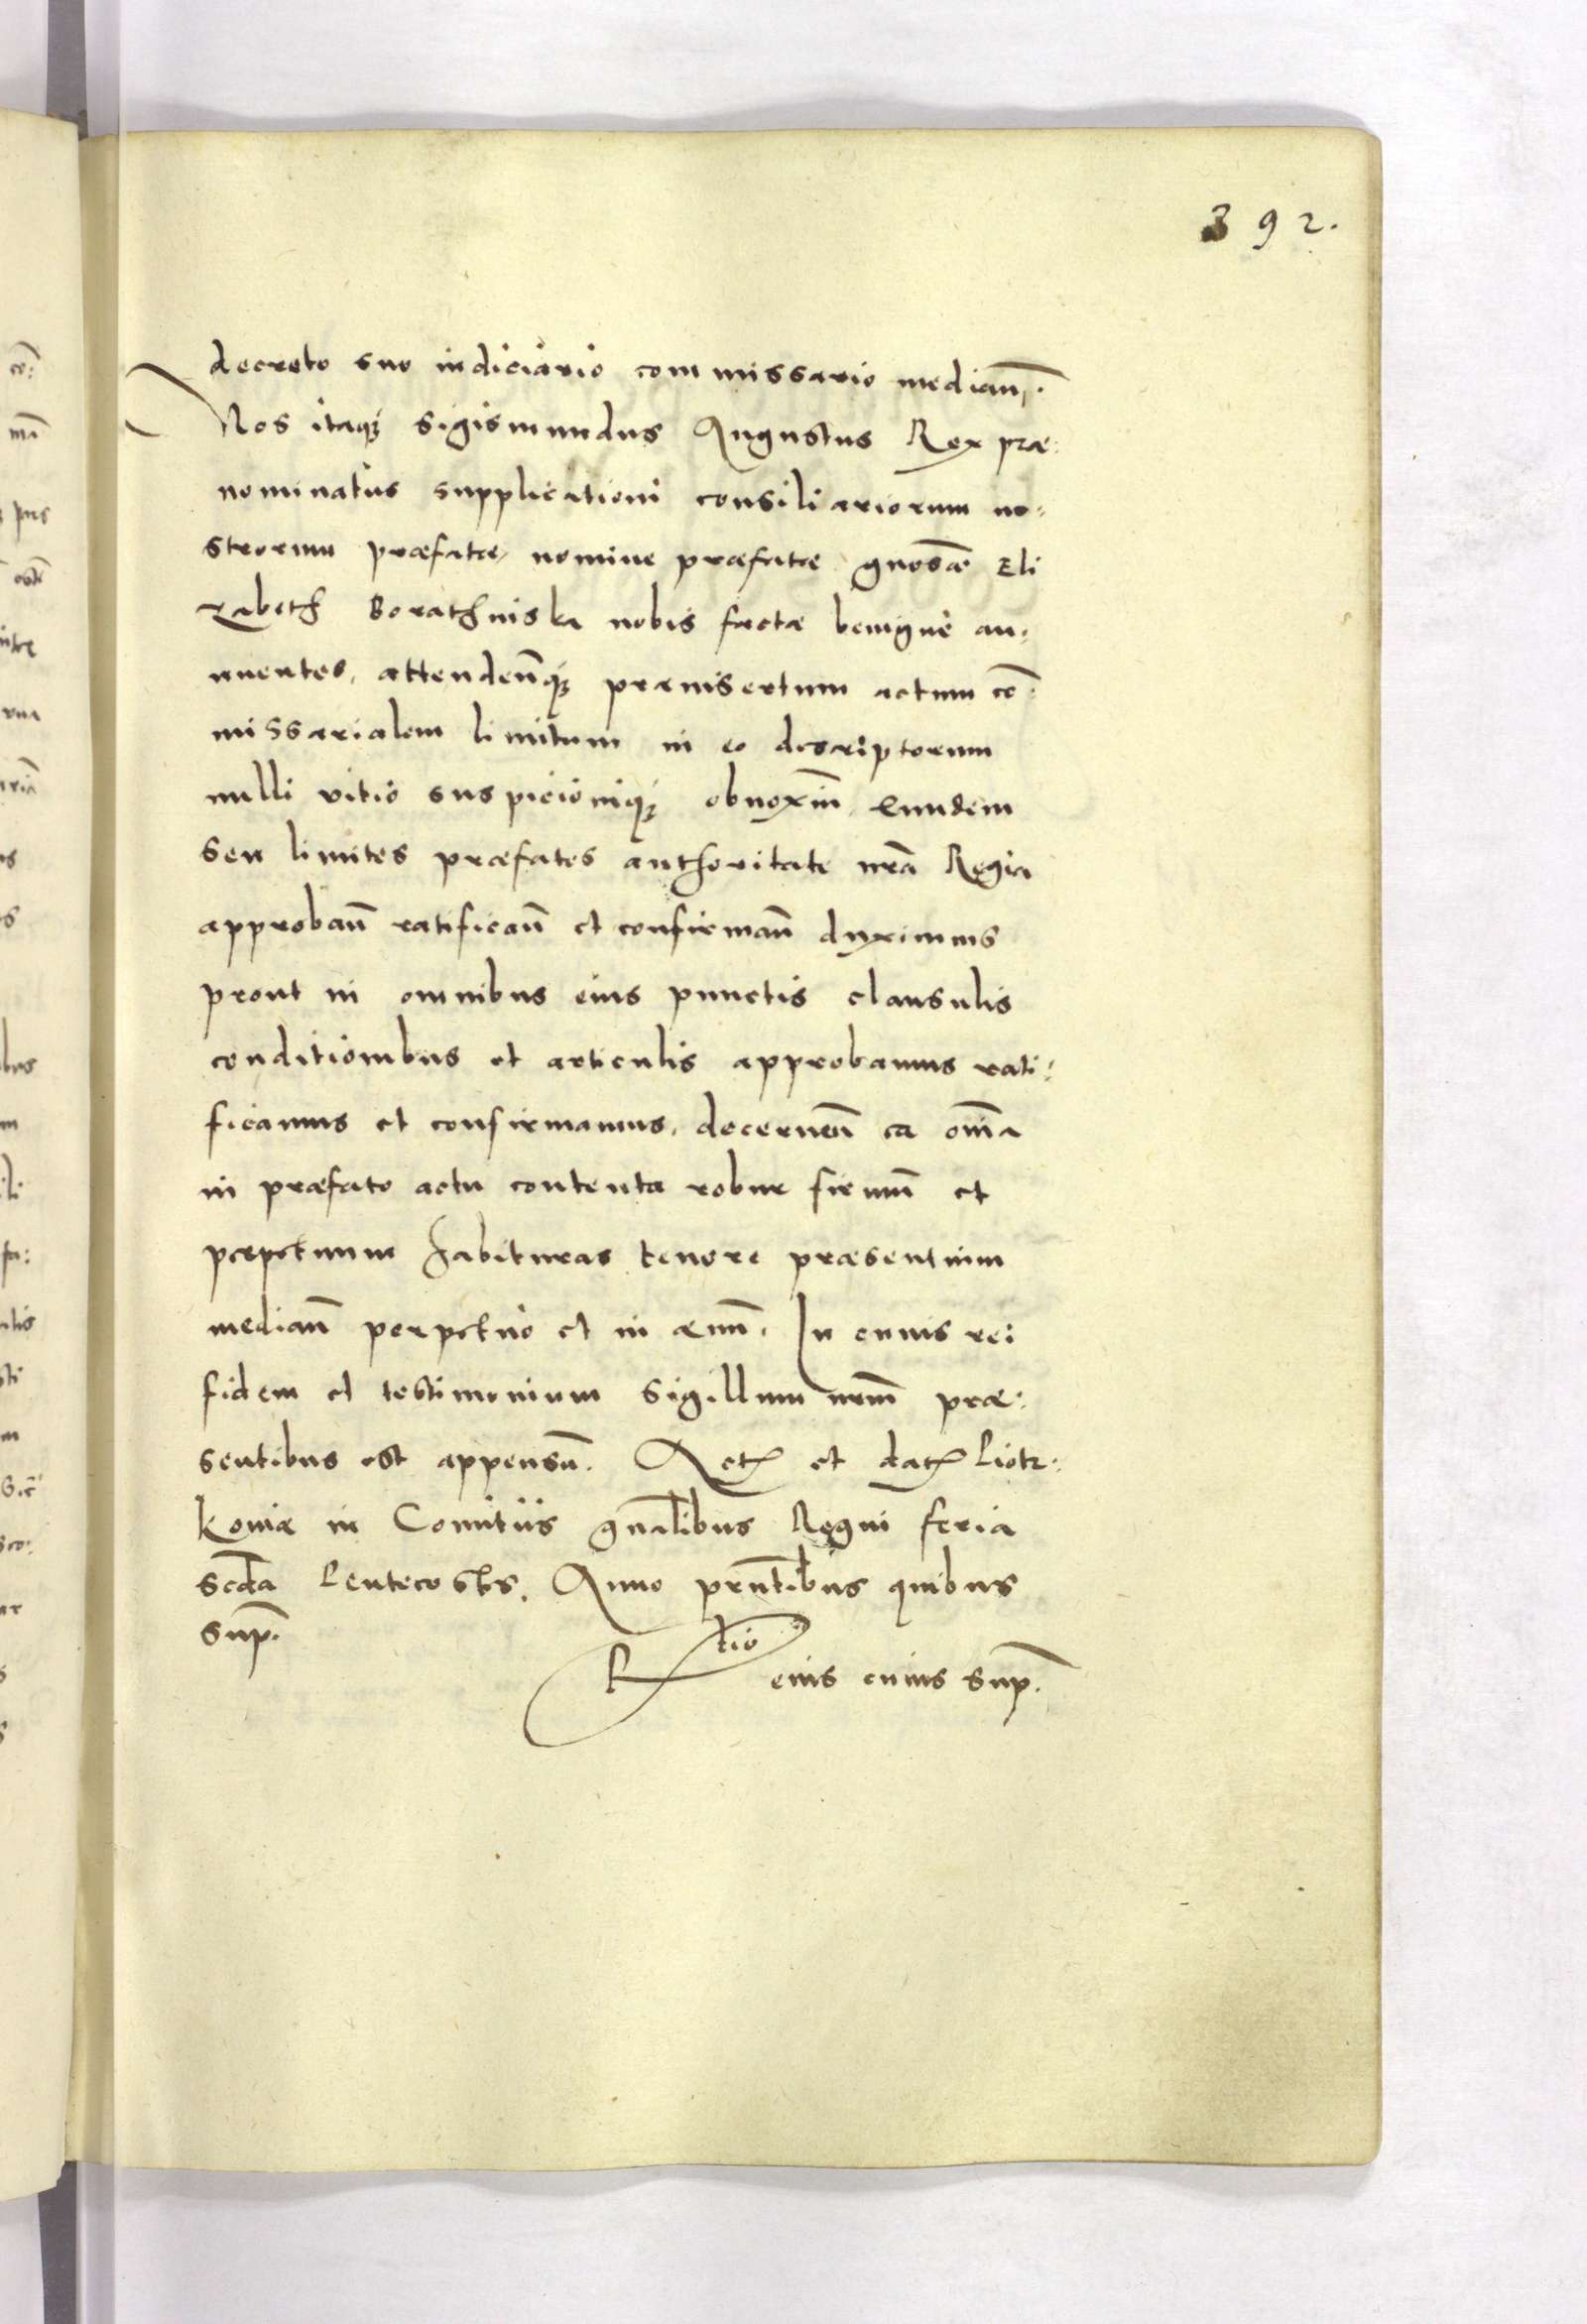 392.
decreto suo iudiciario commissario median̄.
Nos itaqȝ Sigismundus Augustus Rex præ:
nominatus supplicationi consiliariorum no:
strorum præfatæ, nomine præfatæ gnosæ Eli
zabeth Borathniska nobis factæ benigne an:
nuentes, attenden̄qȝ præinsertum actum cō:
missarialem limitum in eo descriptorum
nulli vitio suspicioniqȝ obnoxiū, Eundem
seu limites præfatos authoritate nr̄a Regia
approban̄ ratifican̄ et confirman̄ duximus
prout in omnibus eius punctis clausulis
conditionibus et articulis approbamus rati:
ficamus et confirmamus, decernen̄ ea om̄ia
in præfato actu contenta robur firmū et
perpetuum habituras tenore præsentium
median̄ perpetuo et in æuū. In cuius rei
fidem et testimonium Sigillum nr̄m præ:
sentibus est appensū. Act. et dat. Piotr:
koviæ in Comitiis gn̄alibus Regni feria
sc̄da Pentecostes. Anno prn̄tibus quibus
sup.
R̄tio eius cuius sup.